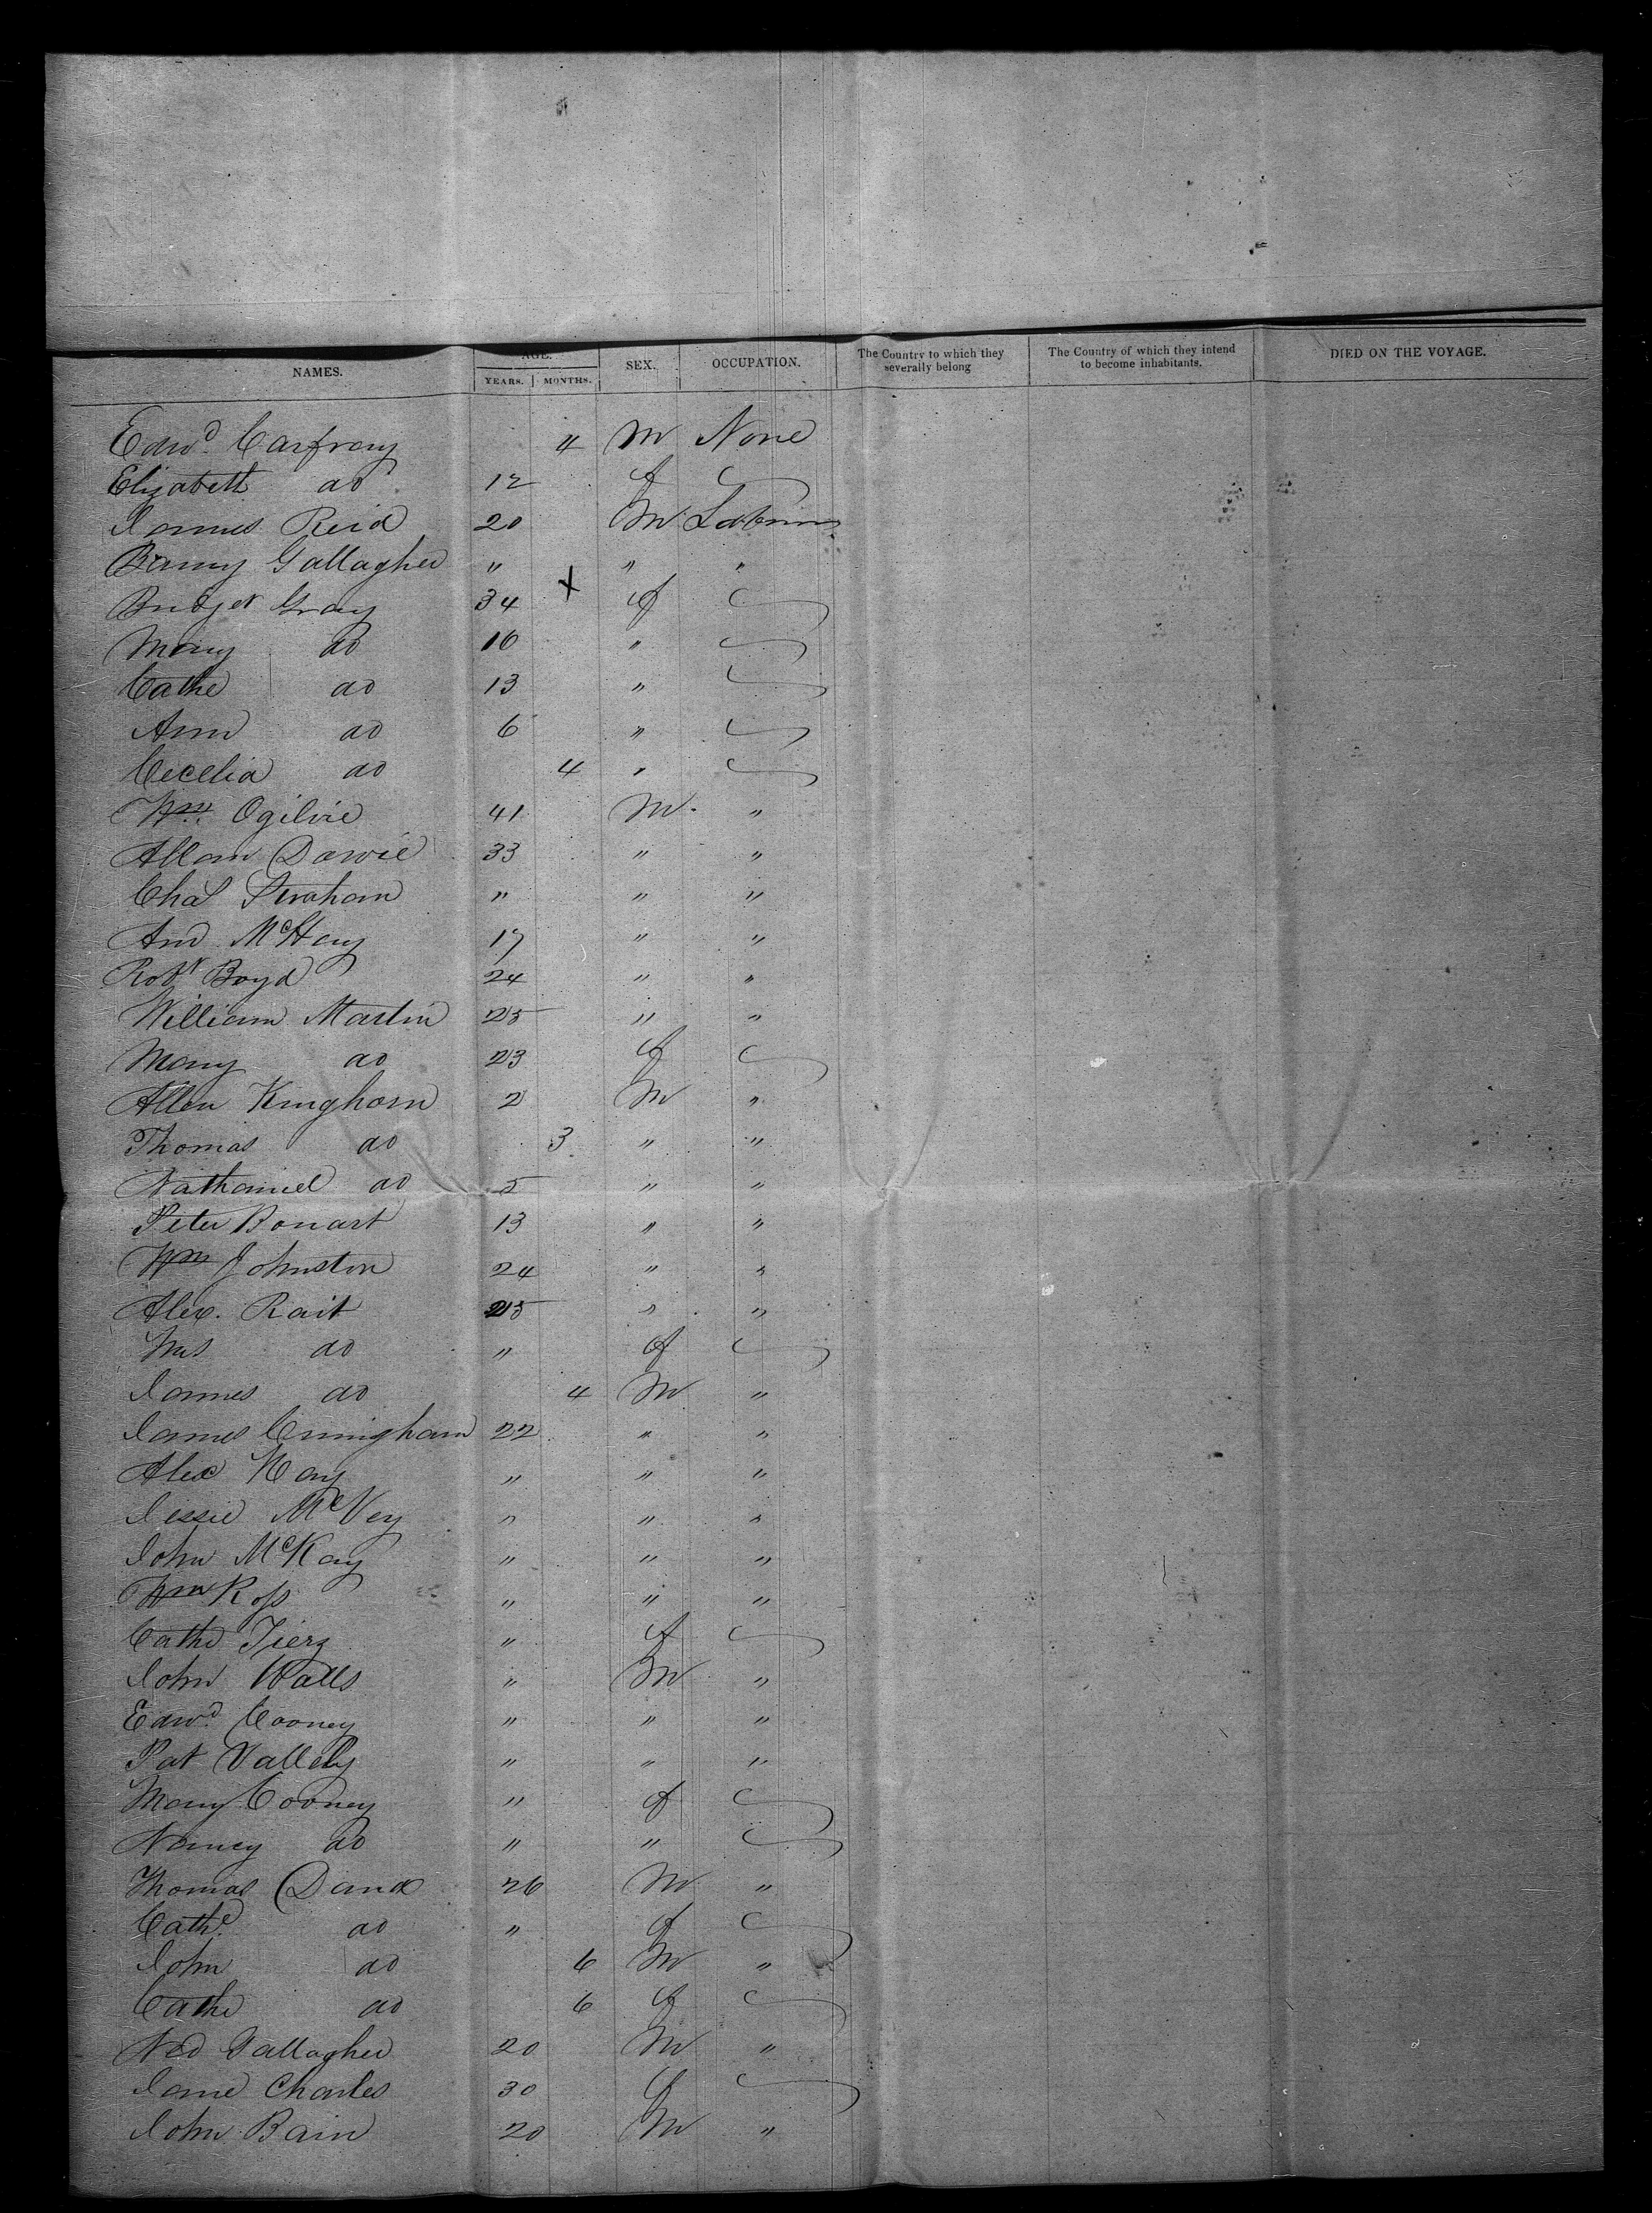 NAMES. AGE. YEARS. MONTHS. SEX. OCCUPATION. The Country to which they severally belong The Country of which they intend to become inhabitants. DIED ON THE VOYAGE.
Edwd. Carfray 4 M None
Elizabeth do 12 f
James Reid 20 M
Gallagher " " "
Bridget Gray 34 X f
Mary do 16 "
Cathe do 13 "
Ann do 6 "
Cecelia do 4 "
Wm. Ogilvie 41 M. "
Allan Dowie 33 " "
Chas " " "
And McHay 17 " "
Robt Boyd 24 " "
William Martin 25 " "
Mary do 23 f
Allen Kinghorn 2 M "
Thomas do 3 " "
Nathaniel do 5 " "
Peter Bonart 13 " "
Wm Johnston 24 " "
Alex. Rait 25 " "
Mrs do " f
James do 4 M "
James Cuningham 22 " "
Alex Hay " " "
Jessie McVey " " "
John McKay " " "
Wm Ross " " "
Cathe " f
John Walls " M "
Edwd. Cooney " " "
Pat Vallely " " "
Mary Cooney " f
Nancy do " "
Thomas 26 M "
Cathe. do " f
John do 6 M "
Cathe do 6 f
Ned Gallagher 20 M "
Jane Charles 30 f
John Bain 20 M "